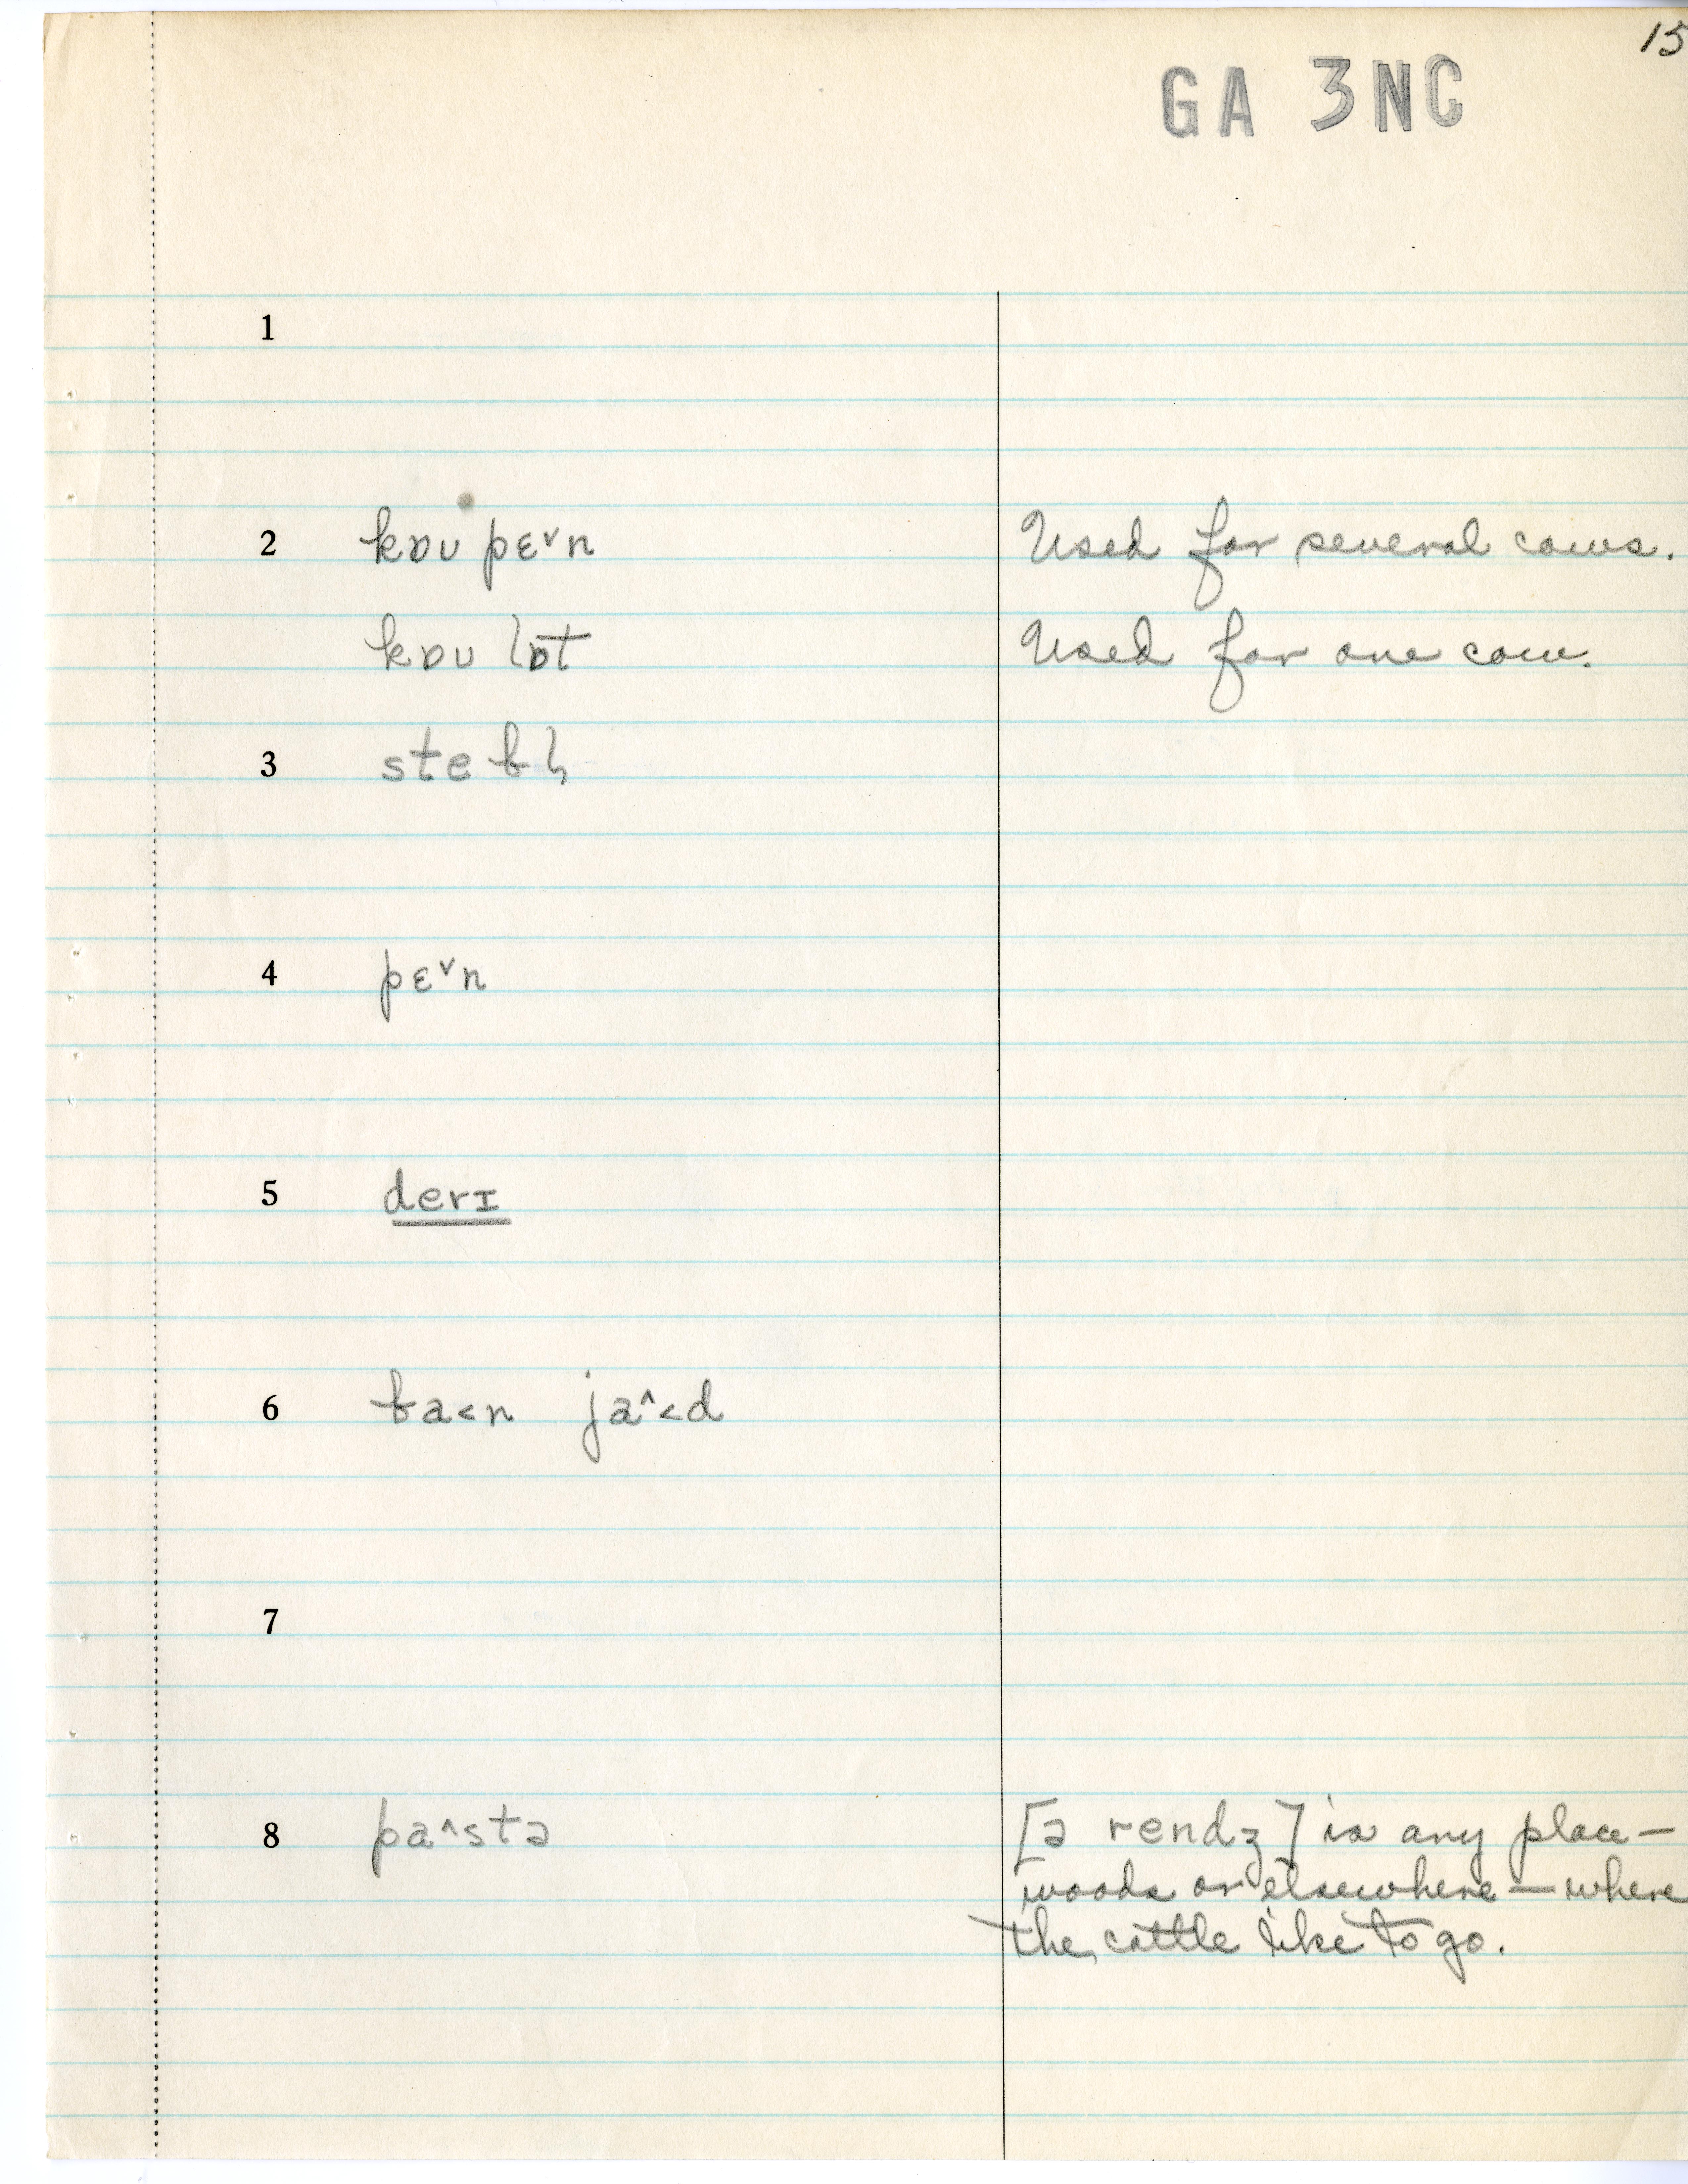 15
GA 3NC
1
2 kɒu pɛ˅n Used for several cows.
kɒu lɒt Used for one cow.
3 stebl̩
4 pɛ˅n
5 derɪ
6 ba<n ja^<d
7
8 pa^stə [ə rendʒ] is any place—
woods or elsewhere — where
the cattle like to go.